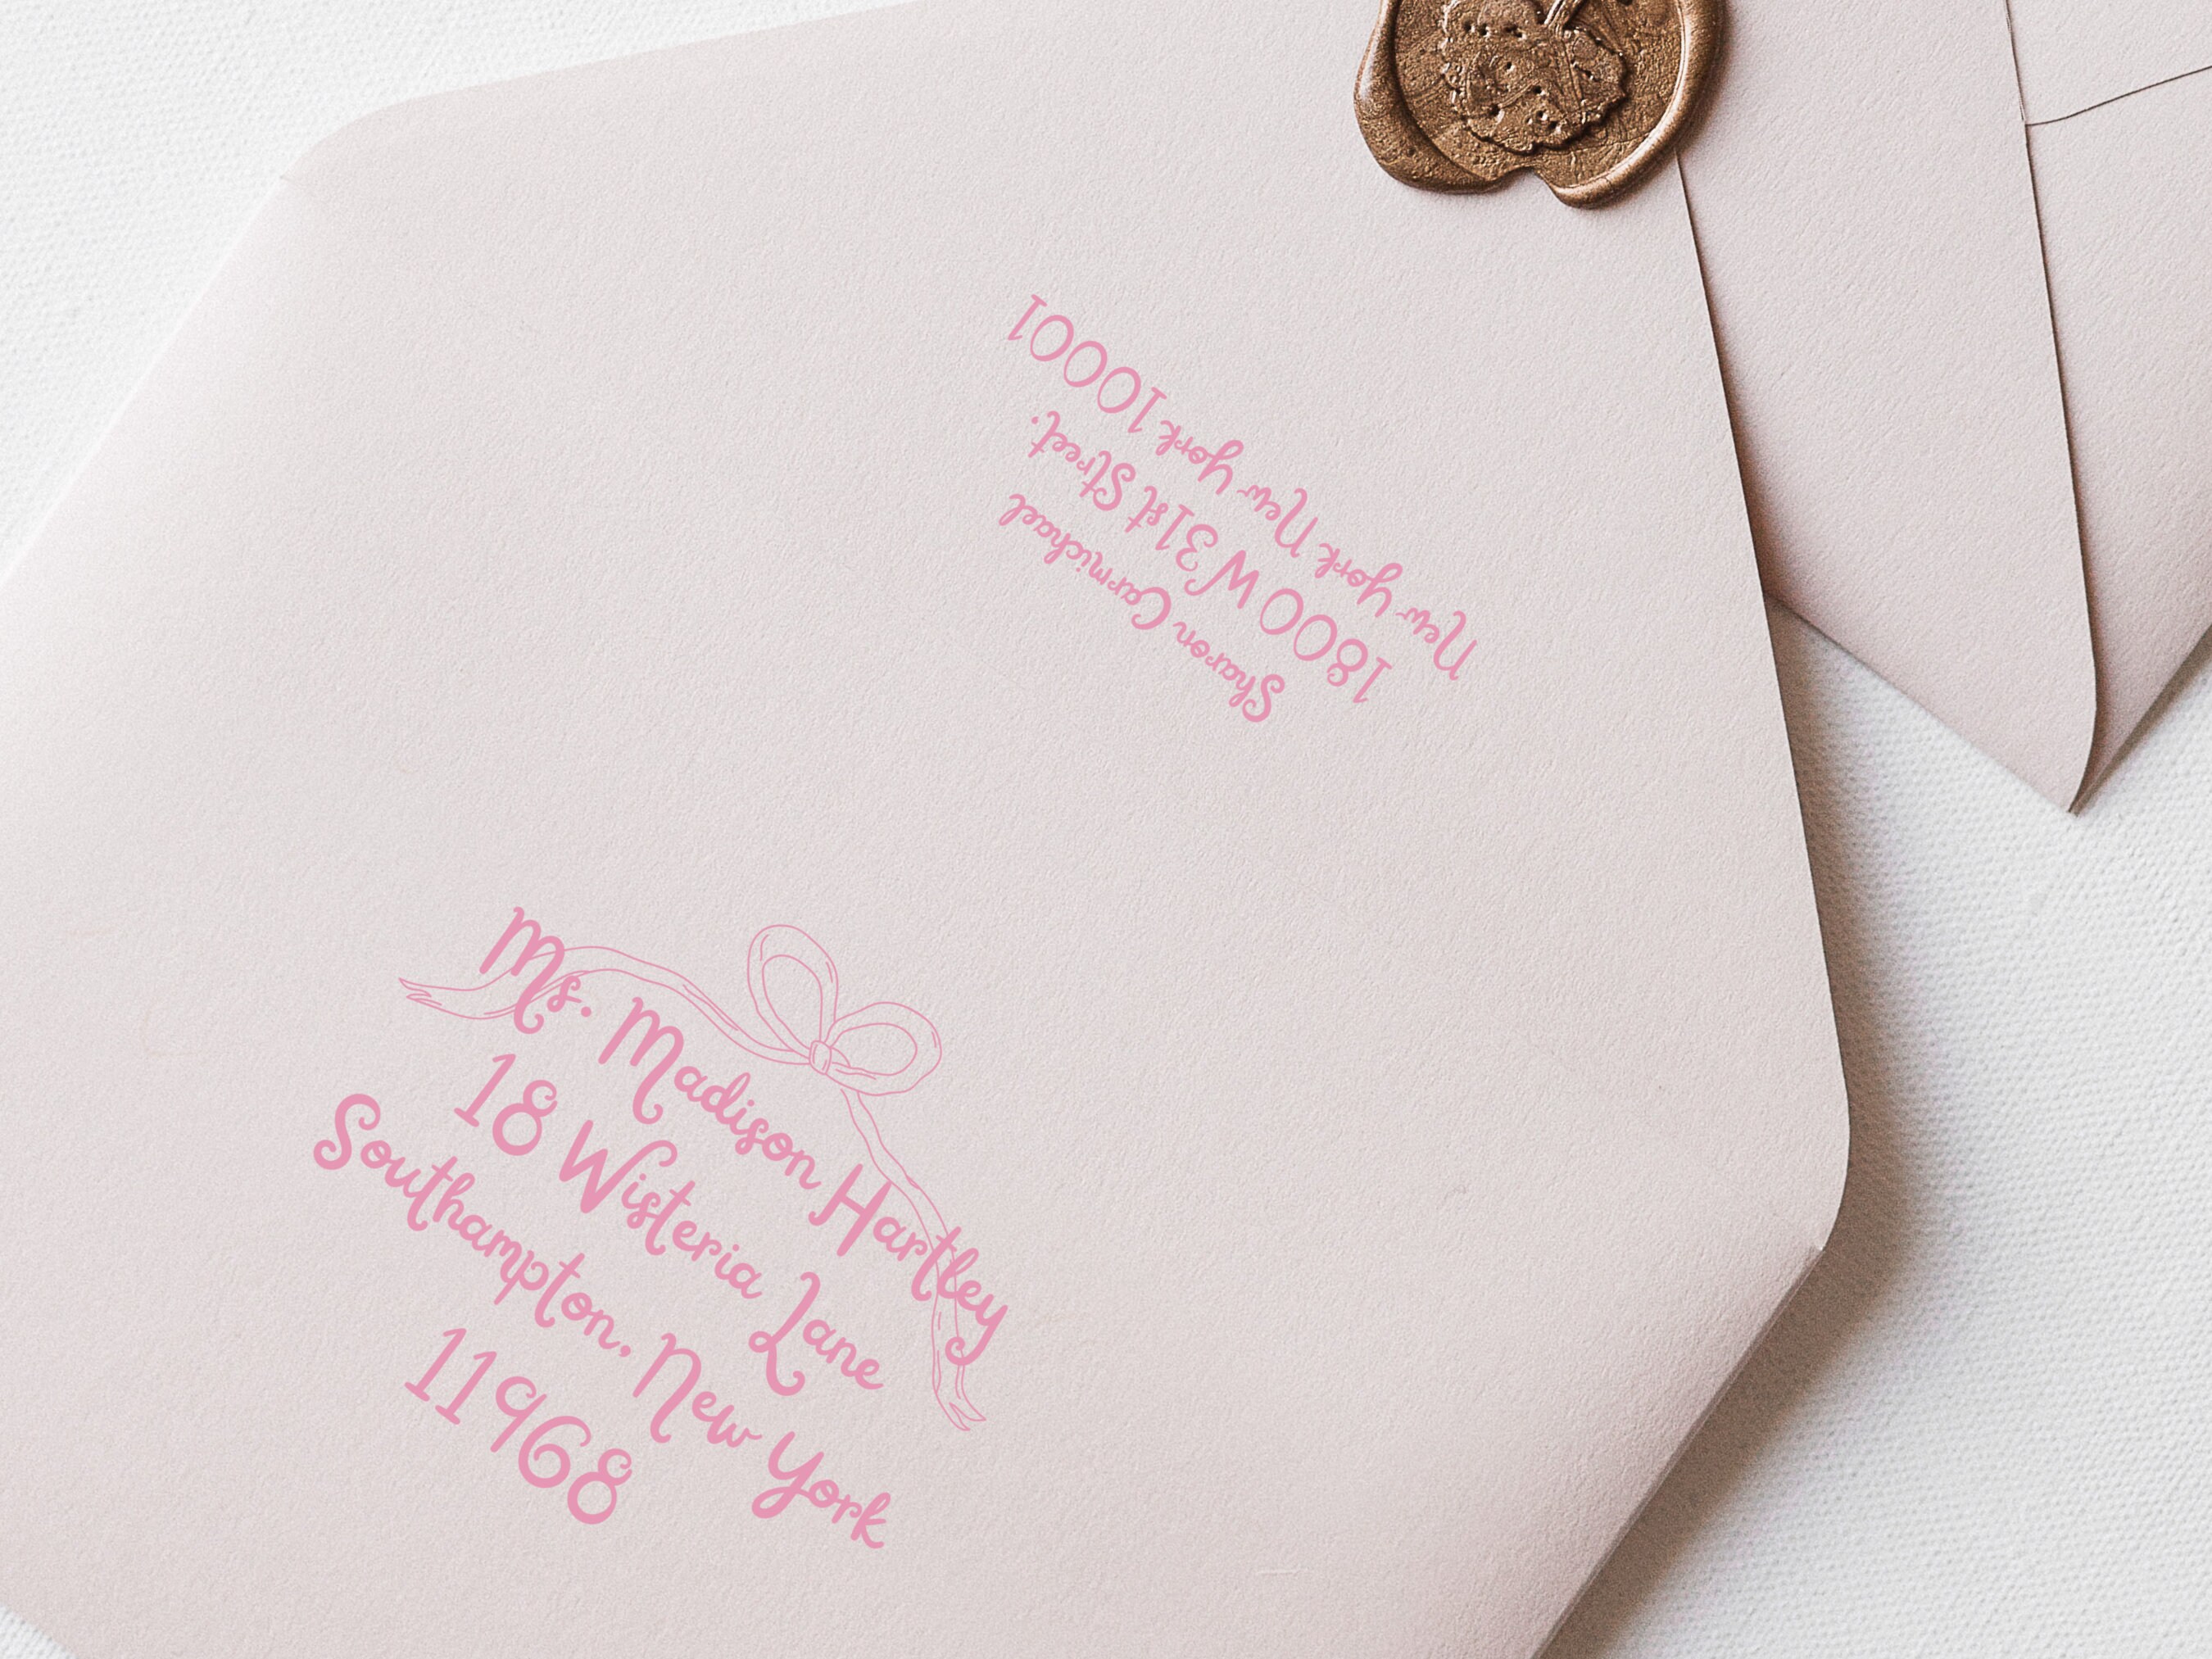 Sharon Carmichael
1800 W 31st Street.
New York New York 10001
Ms. Madison Hartley
18 Wisteria Lane
Southampton, New York
11968